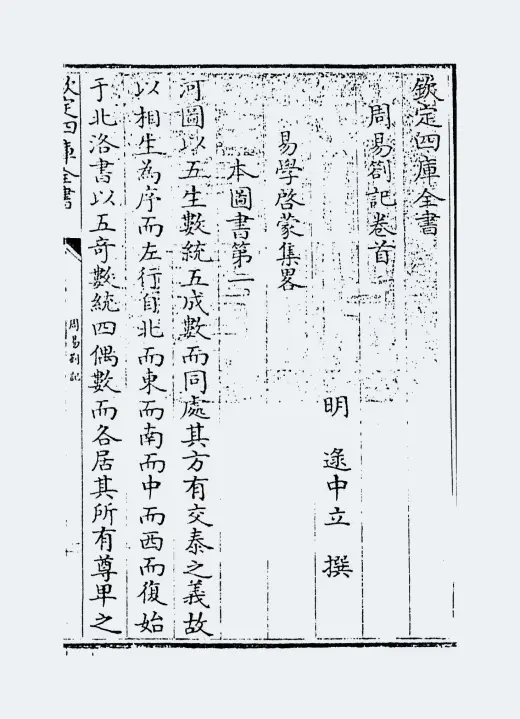 欽定四庫全書
周易劄記卷首
明 逯中立 撰
易學啓蒙集畧
本圖書第一
河圖以五生數統五成數而同處其方有交泰之義故
以相生為序而左行自北而東而南而中而西而復始
于北洛書以五奇數統四偶數而各居其所有尊卑之
欽定四庫全書
周易劄記